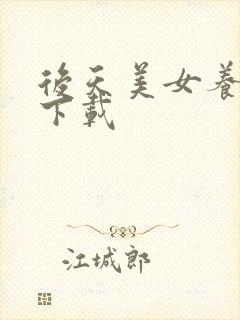 後天美女養
下載
江城郎